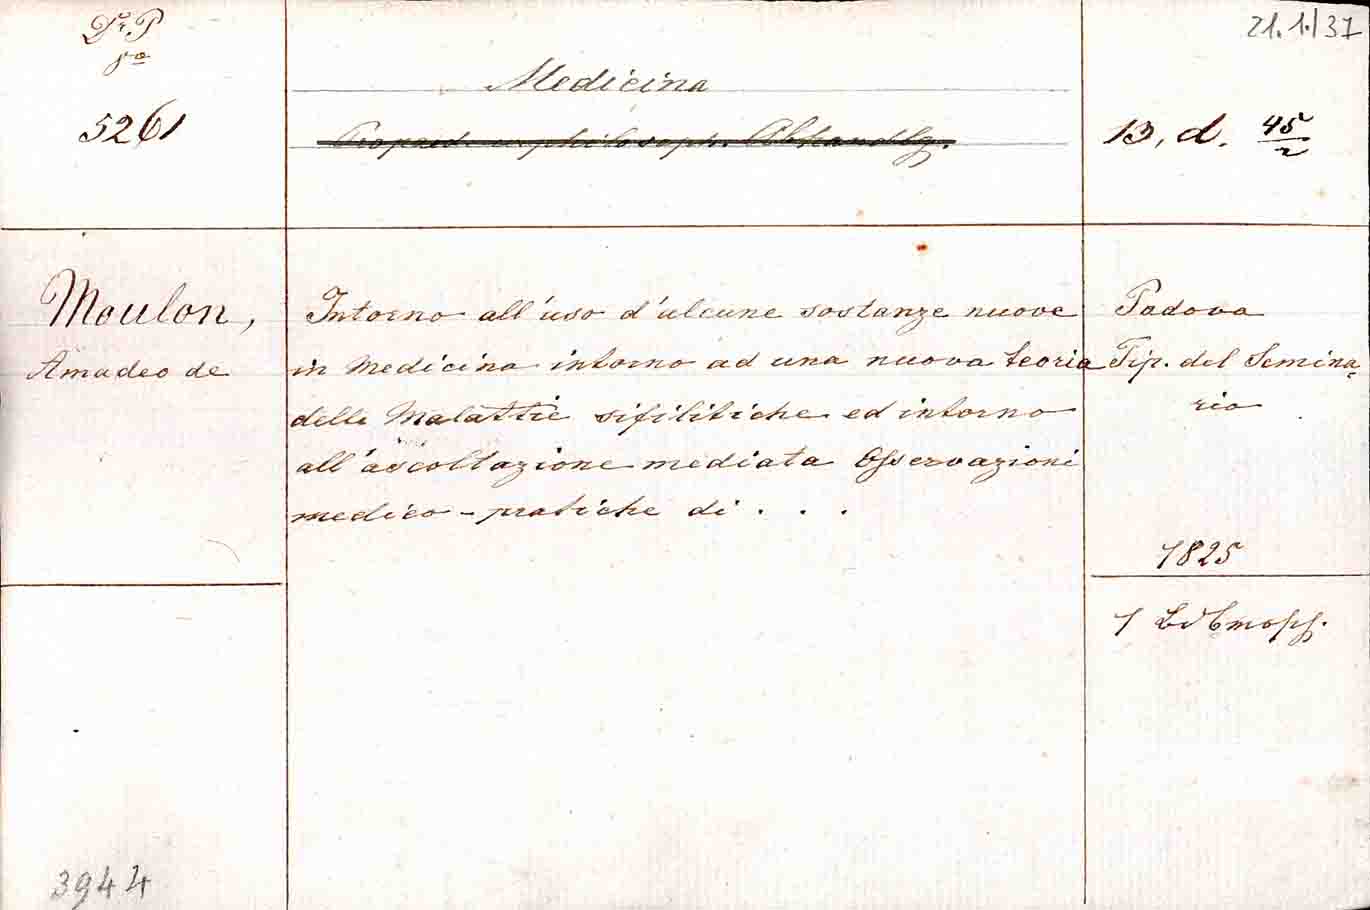 Dr. P
8o
5261
Medicina
Propaed. u. philosoph. Abhandlg.
13, d. 45/2
21.1.|37
Moulon,
Amadeo de
Intorno all'uso d'alcune sostanze nuove
in Medicina intorno ad una nuova teoria
delle Malattie sifilitiche ed intorno
all'ascoltazione mediata Osservazioni
medico-pratiche di . . .
Padova
Tip. del Semina=
rio
1825
1
3944